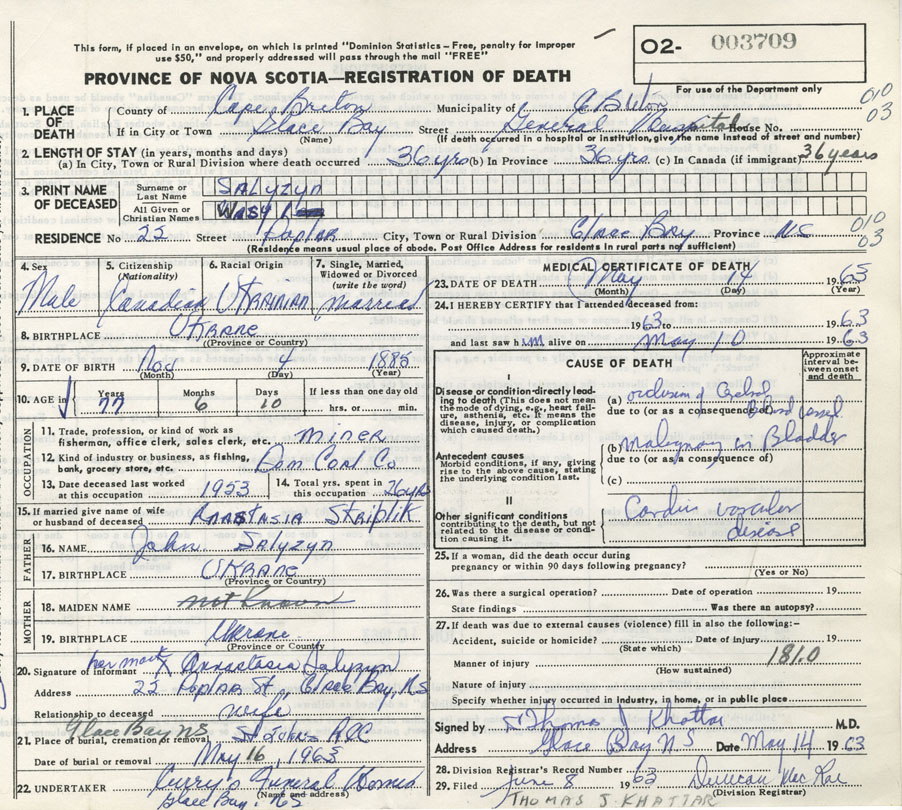 This form, if placed in an envelope, on which is printed "Dominion Statistics – Free, penalty for improper
use $50," and properly addressed will pass through the mail "FREE"
O2- 003709
PROVINCE OF NOVA SCOTIA—REGISTRATION OF DEATH
For use of the Department only
010
03
1. PLACE OF DEATH
County of Cape Breton Municipality of C Breton
If in City or Town Glace Bay Street General Hospital House No.
(Name) (If death occurred in a hospital or institution, give the name instead of street and number)
2. LENGTH OF STAY (in years, months and days)
(a) In City, Town or Rural Division where death occurred 36 yrs (b) In Province 36 yrs. (c) In Canada (if immigrant) 36 years
3. PRINT NAME OF DECEASED
Surname or Last Name SALYZYN
All Given or Christian Names WASYL
010
03
RESIDENCE No 22 Street Poplar City, Town or Rural Division Glace Bay Province NS
(Residence means usual place of abode. Post Office Address for residents in rural parts not sufficient)
4. Sex Male
5. Citizenship (Nationality) Canadian
6. Racial Origin UKRAINIAN
7. Single, Married, Widowed or Divorced (write the word) married
8. BIRTHPLACE UKRANE
(Province or Country)
9. DATE OF BIRTH Nov 4 1885
(Month) (Day) (Year)
10. AGE in Years 77 Months 6 Days 10 If less than one day old hrs. or min.
OCCUPATION
11. Trade, profession, or kind of work as fisherman, office clerk, sales clerk, etc. MINER
12. Kind of industry or business, as fishing, bank, grocery store, etc. Dom Coal Co
13. Date deceased last worked at this occupation 1953
14. Total yrs. spent in this occupation 26 yrs
15. If married give name of wife or husband of deceased ANASTASIA SKIPLIK
FATHER
16. NAME John SALYZYN
17. BIRTHPLACE UKRANE
(Province or Country)
MOTHER
18. MAIDEN NAME not known
19. BIRTHPLACE Ukrane
(Province or Country)
20. Signature of informant her mark X Annastasia Salyzyn
Address 22 Poplar St, Glace Bay, NS
Relationship to deceased wife
21. Place of burial, cremation or removal Glace Bay NS St Johns RCC
Date of burial or removal May 16, 1963
22. UNDERTAKER Curry's Funeral Home
(Name and address)
Glace Bay, NS
MEDICAL CERTIFICATE OF DEATH
23. DATE OF DEATH May 14 1963
(Month) (Day) (Year)
24. I HEREBY CERTIFY that I attended deceased from:
1963 to 1963
and last saw him alive on May 10 1963
CAUSE OF DEATH
Approximate interval between onset and death
I
Disease or condition directly leading to death (This does not mean the mode of dying, e.g., heart failure, asthenia, etc. It means the disease, injury, or complication which caused death.)
(a) of Cerebral
due to (or as a consequence of) blood vessel
Antecedent causes
Morbid conditions, if any, giving rise to the above cause, stating the underlying condition last.
(b) Malignancy in Bladder
due to (or as a consequence of)
(c)
II
Other significant conditions
contributing to the death, but not related to the disease or condition causing it.
Cardio vascular
disease
25. If a woman, did the death occur during pregnancy or within 90 days following pregnancy?
(Yes or No)
26. Was there a surgical operation? Date of operation 19
State findings Was there an autopsy?
27. If death was due to external causes (violence) fill in also the following:–
Accident, suicide or homicide? Date of injury 19
(State which)
Manner of injury 181.0
(How sustained)
Nature of injury
Specify whether injury occurred in industry, in home, or in public place
Signed by Thomas J Khattar M.D.
Address Glace Bay N S Date May 14 1963
28. Division Registrar's Record Number
29. Filed June 8 1963 Duncan MacRae
(Division Registrar)
THOMAS J. KHATTAR